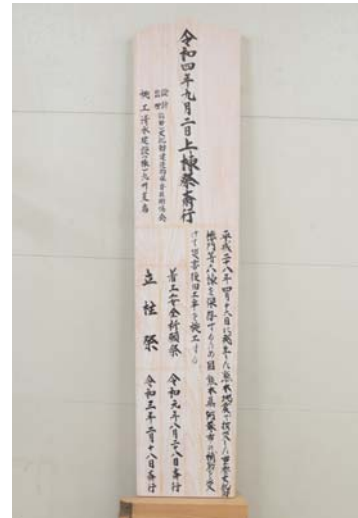 令和四年九月二日上棟祭斎行
設計
監理 (公財)文化財建造物保存技術協会
施工 清水建設(株)九州支店
平成二十八年四月十六日に発生した熊本地震で被災した重要文化財
楼門等八棟を保存するため国、熊本県、阿蘇市の補助を受
けて災害復旧工事を施工する
着工安全祈願祭 令和元年八月二十八日斎行
立柱祭 令和三年二月十八日斎行